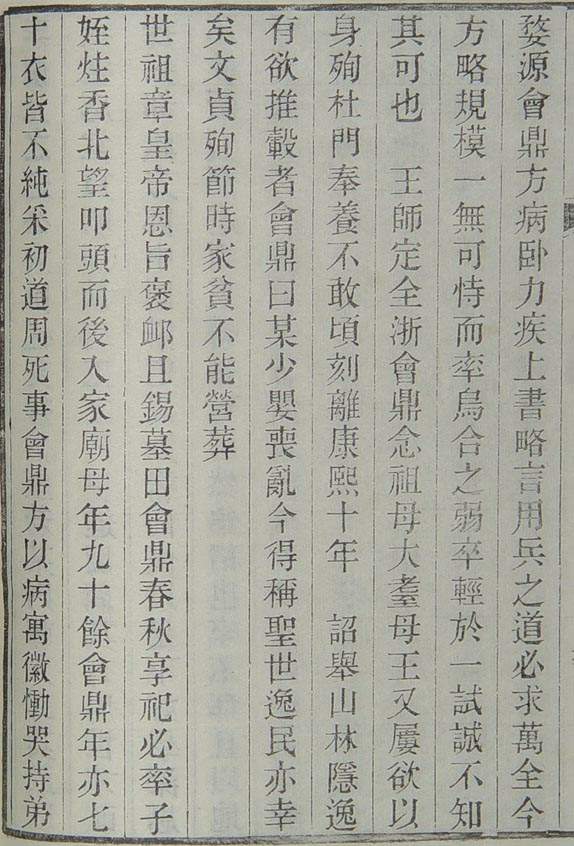 婺源會鼎方病臥力疾上書略言用兵之道必求萬全今
方略規模一無可恃而率烏合之弱卒輕於一試誠不知
其可也　王師定全浙會鼎念祖母大耋母王又屢欲以
身殉杜門奉養不敢頃刻離康熙十年　詔舉山林隱逸
有欲推轂者會鼎曰某少嬰喪亂今得稱聖世逸民亦幸
矣文貞殉節時家貧不能營葬
世祖章皇帝恩旨褒卹且錫墓田會鼎春秋享祀必率子
姪炷香北望叩頭而後入家廟母年九十餘會鼎年亦七
十衣皆不純采初道周死事會鼎方以病寓徽慟哭持弟